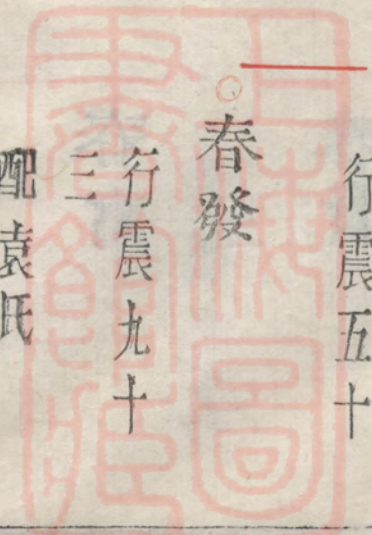 行震五十
春發
行震九十
三
配袁氏